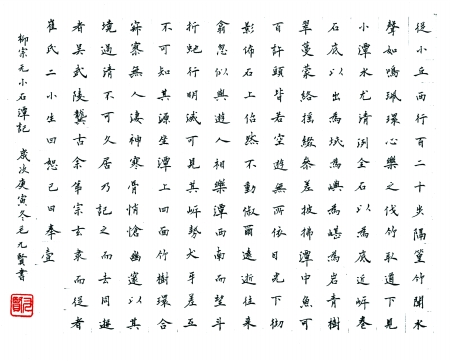 從小丘西行百二十步隔篁竹聞水
聲如鳴珮環心樂之伐竹取道下見
小潭水尤清冽全石以為底近岸卷
石底以出為坻為嶼為嵁為岩青樹
翠蔓蒙絡搖綴參差披拂潭中魚可
百許頭皆若空遊無所依日光下徹
影佈石上佁然不動俶爾遠逝往來
翕忽似與遊人相樂潭西南而望斗
折蛇行明滅可見其岸勢犬牙差互
不可知其源坐潭上四面竹樹環合
寂寥無人淒神寒骨悄愴幽邃以其
境過清不可久居乃記之而去同遊
者吳武陵龔古余弟宗玄隸而從者
崔氏二小生曰恕己曰奉壹
柳宗元小石潭記 歲次庚寅冬毛元賢書